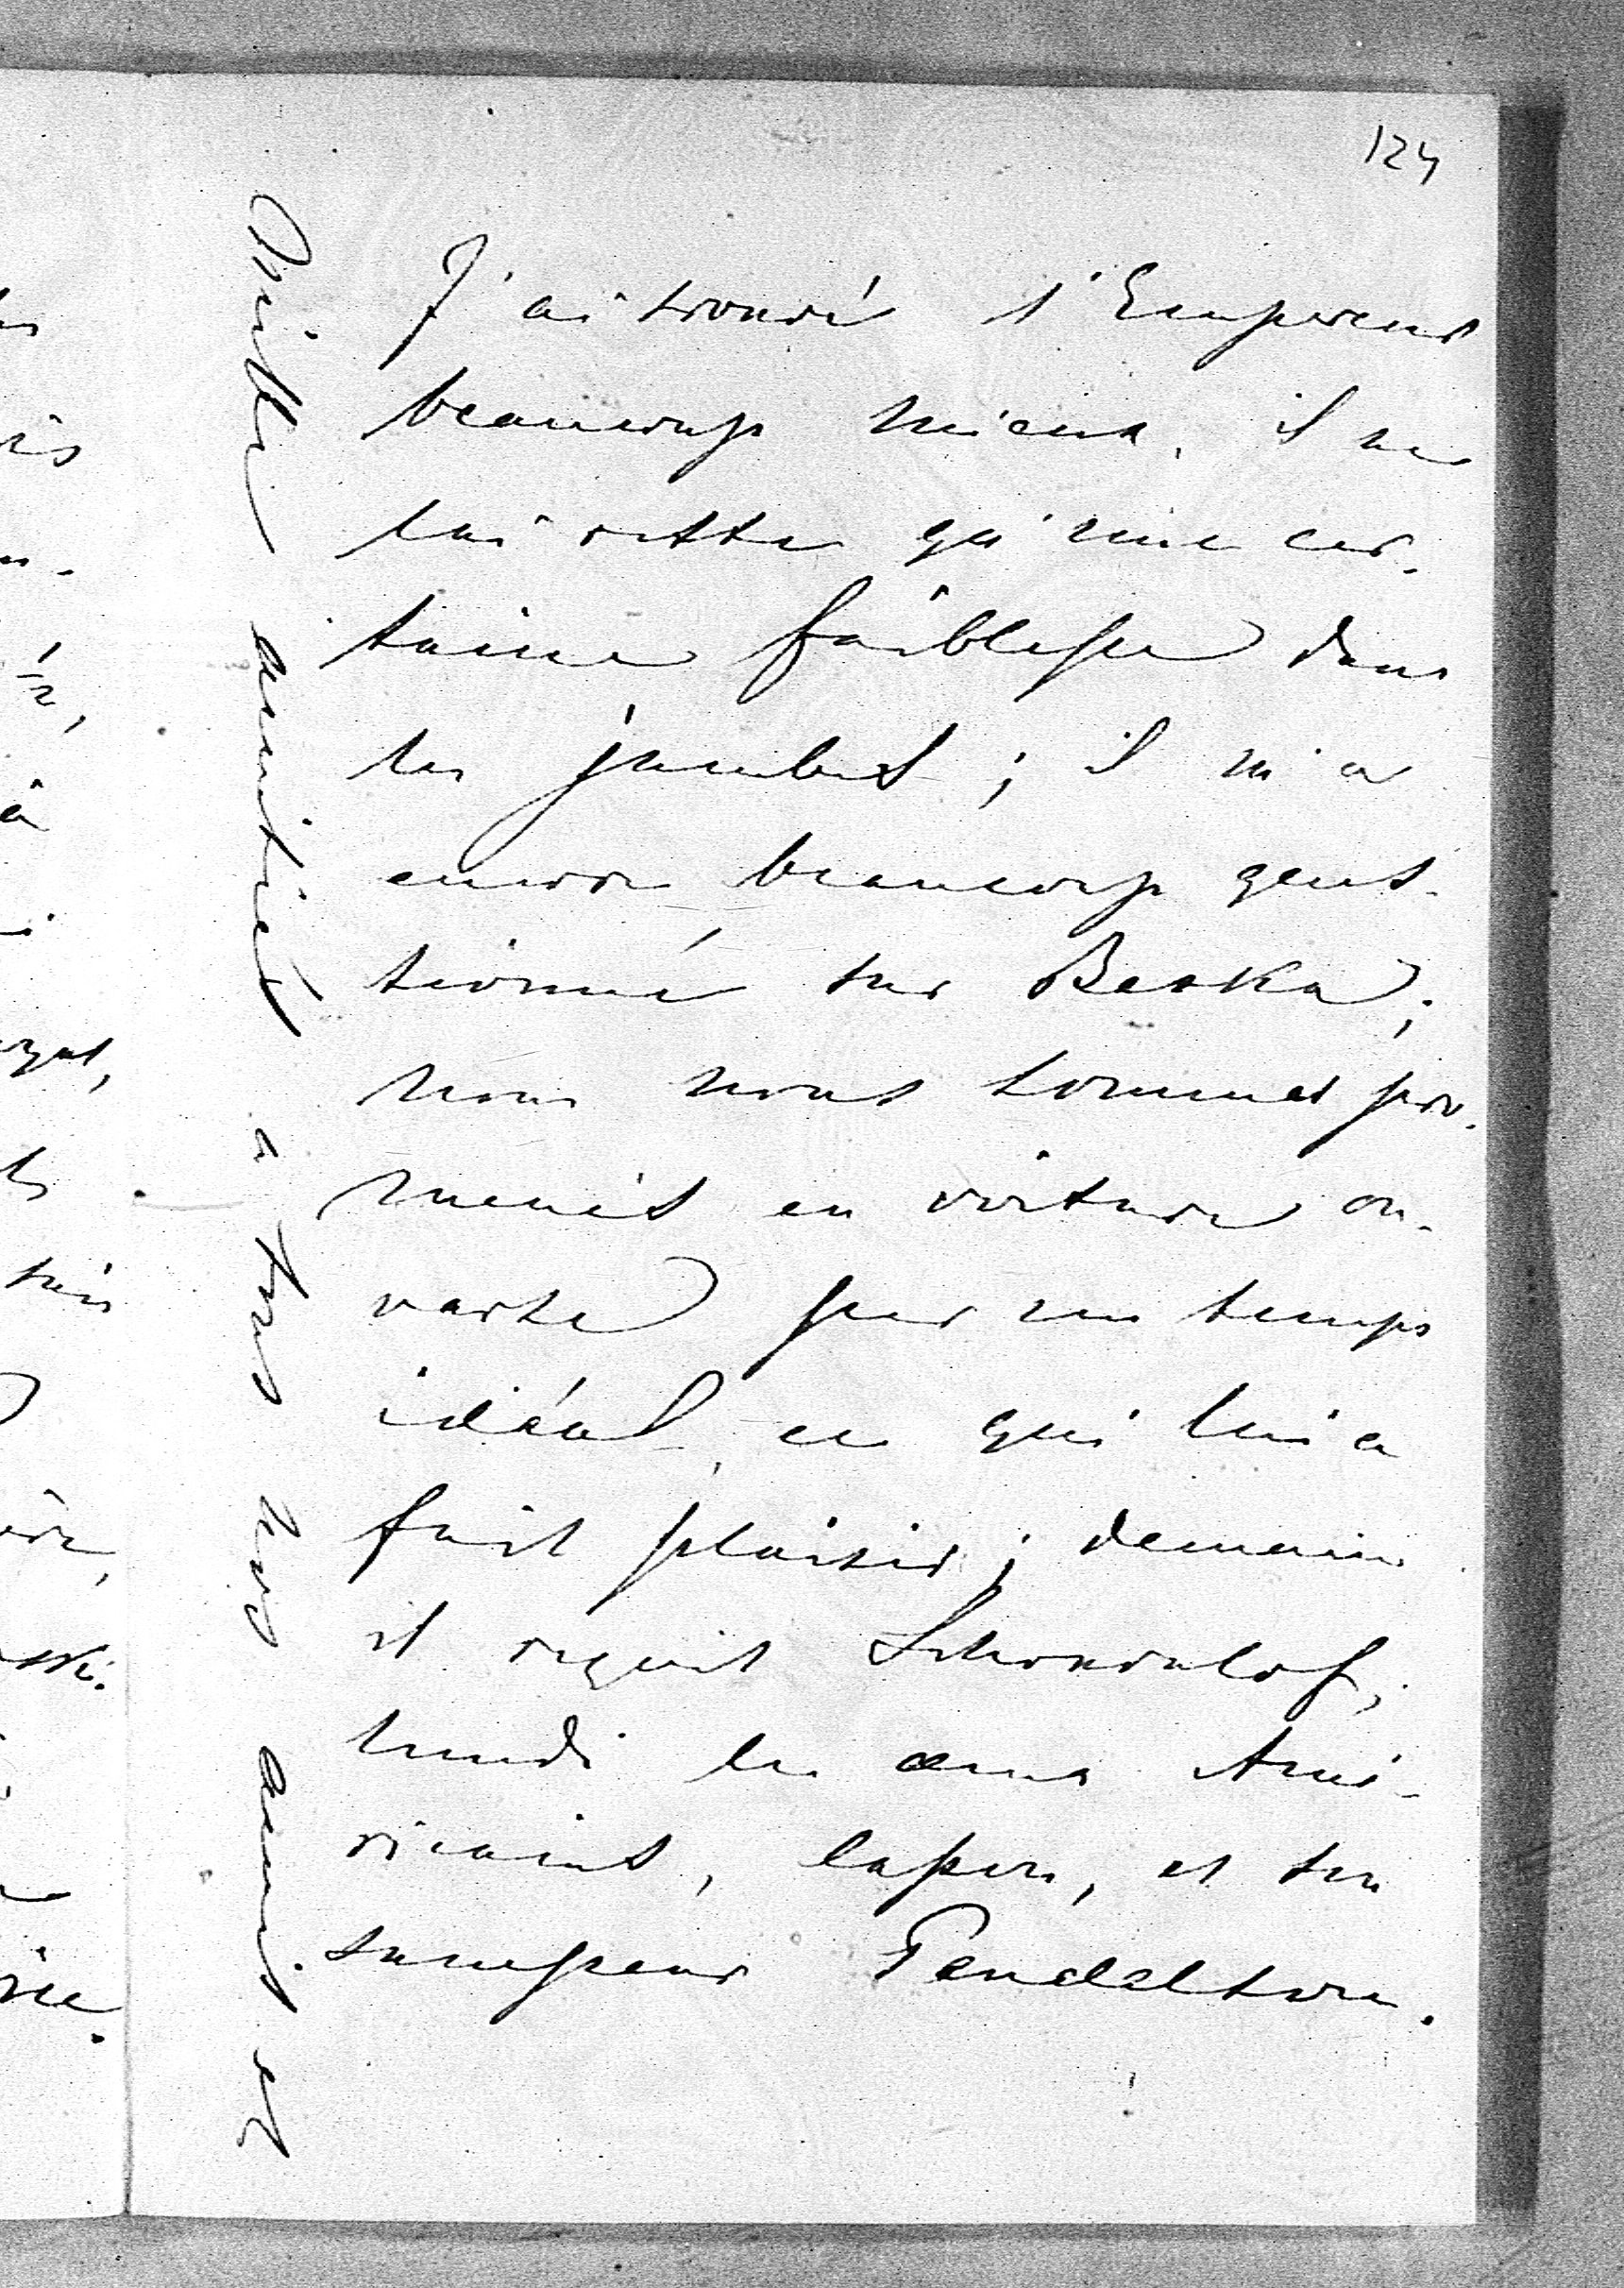 124
J'ai trouvé l'Empereur
beaucoup mieux, il ne
lui reste qu'une cer-
taine faiblesse dans
les jambes ; il m'a
encore beaucoup ques-
tionné sur Beska ;
nous nous sommes pro-
menés en voiture ou-
verte par un temps
idéal, ce qui lui a
fait plaisir ; demain
il reçoit Schouvalof,
lundi les deux Amé-
ricains, et son
successeur Pendelton.
Mille amitiés à tous nos amis et